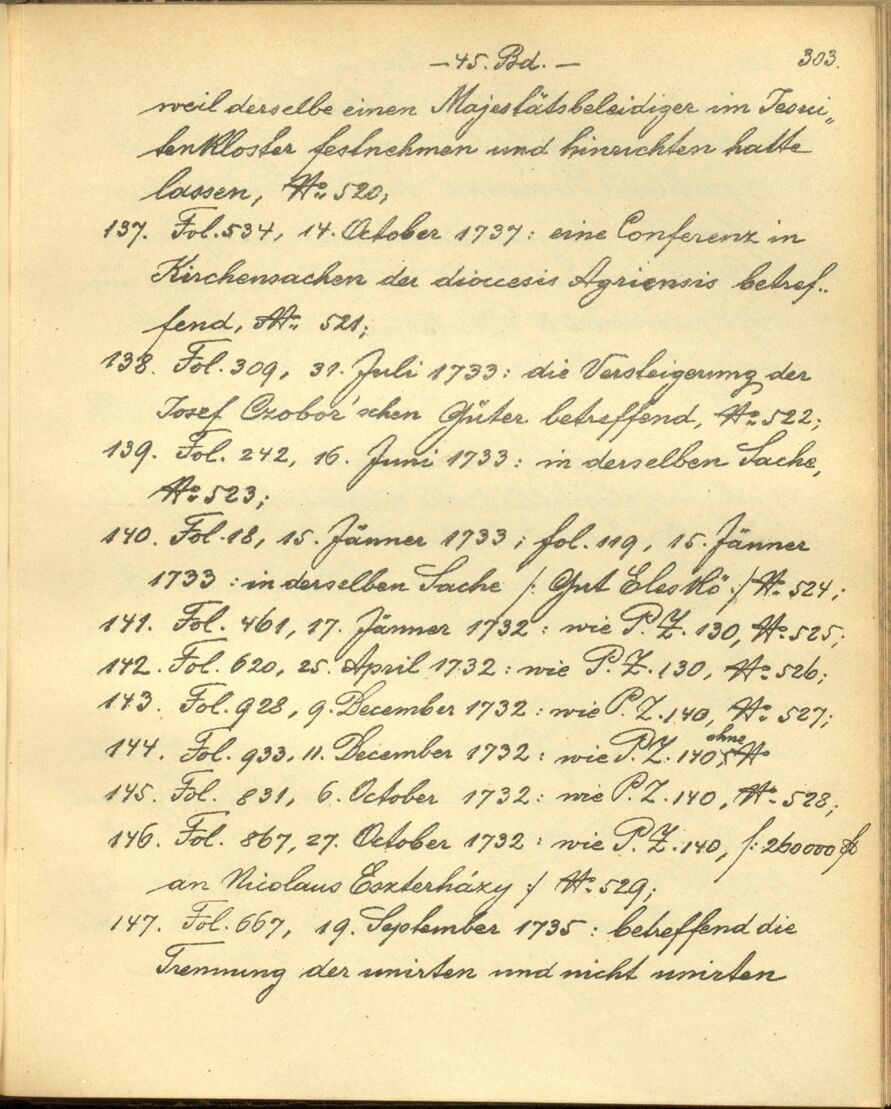 — 45. Bd. — 303.
weil derselbe einen Majestätsbeleidiger im Jesui„
tenkloster festnehmen und hinrichten hatte
lassen, No 520;
137. Fol. 534, 14. October 1737: eine Conferenz in
Kirchensachen der dioecesis Agriensis betref..
fend, No 521;
138. Fol. 309, 31. Juli 1733: die Versteigerung der
Josef Czobor'schen Güter betreffend, No 522;
139. Fol. 242, 16. Juni 1733: in derselben Sache,
No 523;
140. Fol. 18, 15. Jänner 1733; fol. 119, 15. Jänner
1733: in derselben Sache /: Gut Eleskö :/ No 524;
141. Fol. 461, 17. Jänner 1732: wie P. Z. 130, No 525;
142. Fol. 620, 25. April 1732: wie P. Z. 130, No 526;
143. Fol. 928, 9. December 1732: wie P. Z. 140, No 527;
144. Fol. 933, 11. December 1732: wie P. Z. 140, ohne No
145. Fol. 831, 6. October 1732: wie P. Z. 140, No 528;
146. Fol. 867, 27. October 1732: wie P. Z. 140, /: 260000 fl
an Nicolaus Eszterházy :/ No 529;
147. Fol. 667, 19. September 1735: betreffend die
Trennung der unirten und nicht unirten